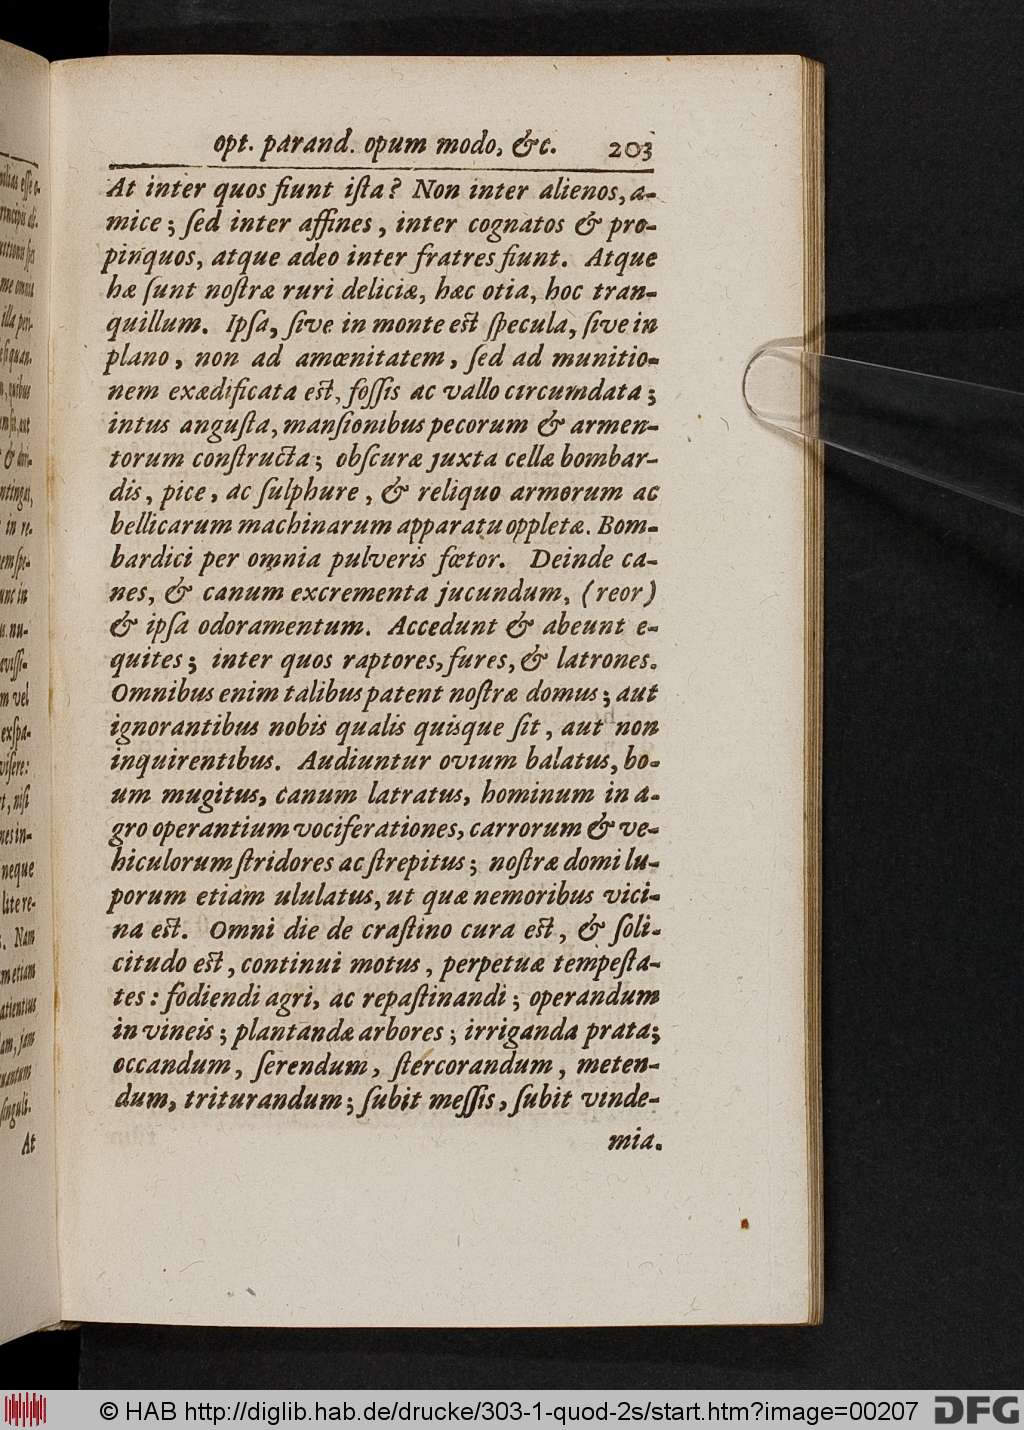 opt. parand. opum modo, &c. 203
At inter quos fiunt iſta? Non inter alienos, a-
mice; ſed inter affines, inter cognatos & pro-
pinquos, atque adeo inter fratres fiunt. Atque
hæ ſunt noſtræ ruri deliciæ, hæc otia, hoc tran-
quillum. Ipſa, ſive in monte eſt ſpecula, ſive in
plano, non ad amœnitatem, ſed ad munitio-
nem exædificata eſt, foſſis ac vallo circumdata;
intus anguſta, manſionibus pecorum & armen-
torum conſtructa; obſcuræ juxta cellæ bombar-
dis, pice, ac ſulphure, & reliquo armorum ac
bellicarum machinarum apparatu oppletæ. Bom-
bardici per omnia pulveris fœtor. Deinde ca-
nes, & canum excrementa jucundum, (reor)
& ipſa odoramentum. Accedunt & abeunt e-
quites; inter quos raptores, fures, & latrones.
Omnibus enim talibus patent noſtræ domus; aut
ignorantibus nobis qualis quisque ſit, aut non
inquirentibus. Audiuntur ovium balatus, bo-
um mugitus, canum latratus, hominum in a-
gro operantium vociferationes, carrorum & ve-
hiculorum ſtridores ac ſtrepitus; noſtræ domi lu-
porum etiam ululatus, ut quæ nemoribus vici-
na eſt. Omni die de craſtino cura eſt, & ſoli-
citudo eſt, continui motus, perpetuæ tempeſta-
tes: fodiendi agri, ac repaſtinandi; operandum
in vineis; plantandæ arbores; irriganda prata;
occandum, ſerendum, ſtercorandum, meten-
dum, triturandum; ſubit meſſis, ſubit vinde-
mia.
At
© HAB http://diglib.hab.de/drucke/303-1-quod-2s/start.htm?image=00207
DFG